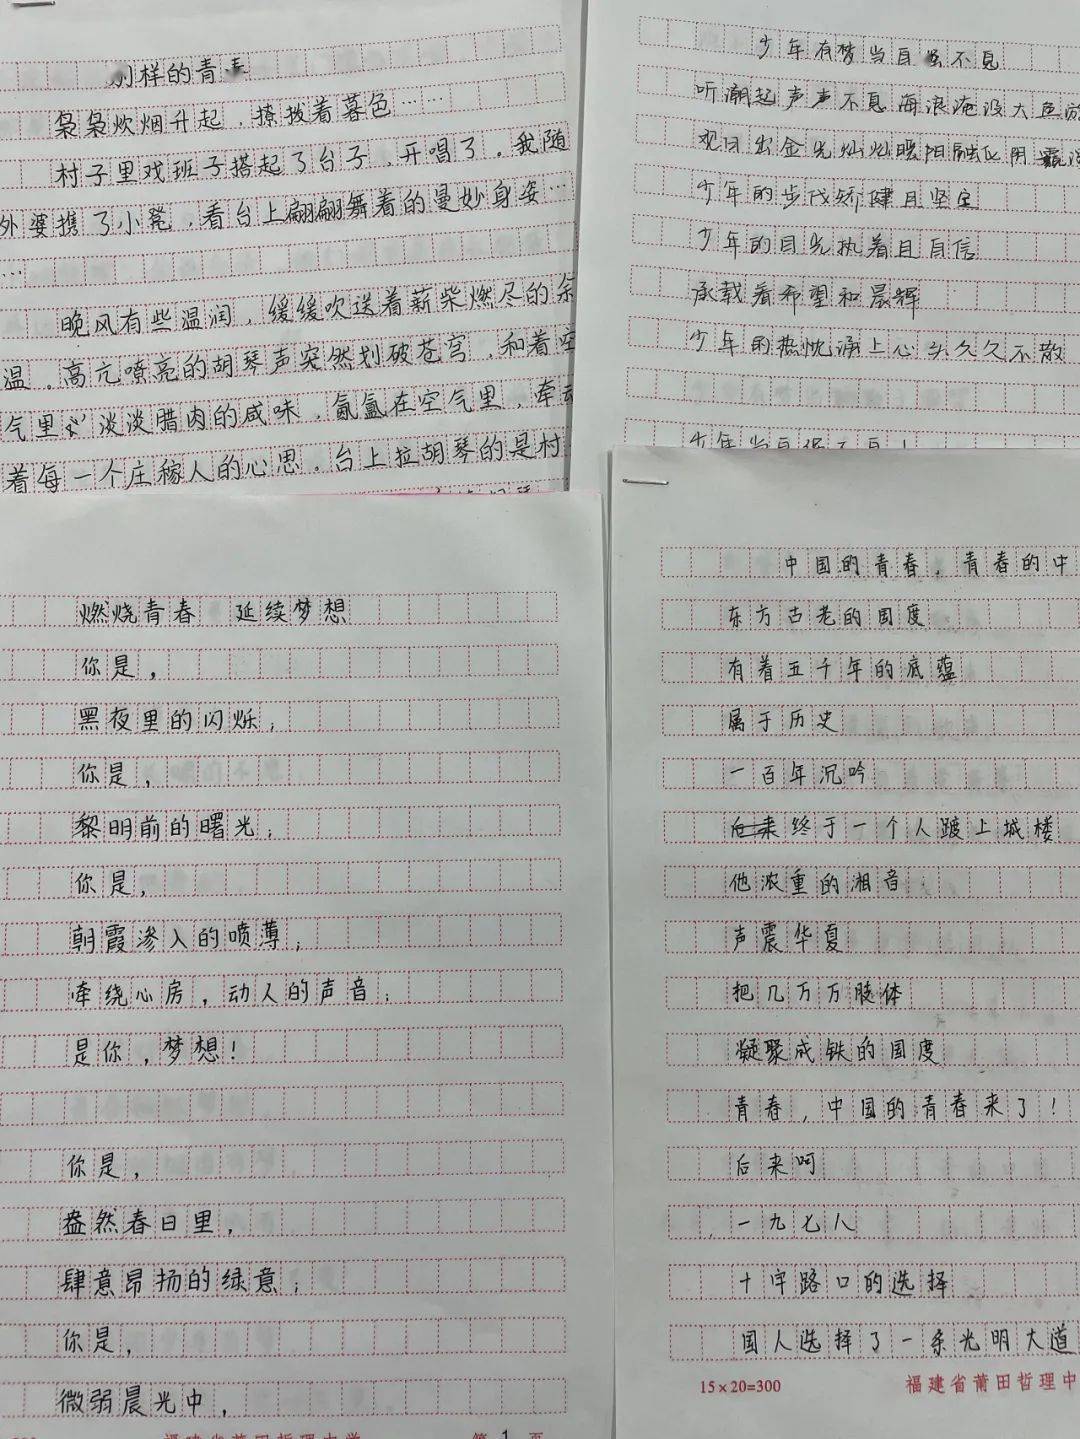 别样的青春
袅袅炊烟升起，撩拨着暮色……
村子里戏班子搭起了台子，开唱了。我随
外婆携了小凳，看台上翩翩舞着的曼妙身姿…
…
晚风有些温润，缓缓吹送着薪柴燃尽的余
温，高亢嘹亮的胡琴声突然划破苍穹，和着空
气里淡淡腊肉的咸味，氤氲在空气里，牵动
着每一个庄稼人的心思。台上拉胡琴的是村
少年有梦当自强不息
听潮起声声不息海浪淹没大鱼
观日出金光灿灿暖阳融化阴霾
少年的步伐矫健且坚定
少年的目光执着且自信
承载着希望和晨辉
少年的热忱涌上心头久久不散
少年当自强不息！
燃烧青春 延续梦想
你是，
黑夜里的闪烁；
你是，
黎明前的曙光；
你是，
朝霞渗入的喷薄；
牵绕心房，动人的声音；
是你，梦想！
你是，
盎然春日里，
肆意昂扬的绿意；
你是，
微弱晨光中，
福建省莆田哲理中学
第 1 页
中国的青春，青春的中
东方古老的国度
有着五千年的底蕴
属于历史
一百年沉吟
后来终于一个人踱上城楼
他浓重的湘音
声震华夏
把几万万肢体
凝聚成铁的国度
青春，中国的青春来了！
后来呵
一九七八
十字路口的选择
国人选择了一条光明大道
15×20=300 福建省莆田哲理中